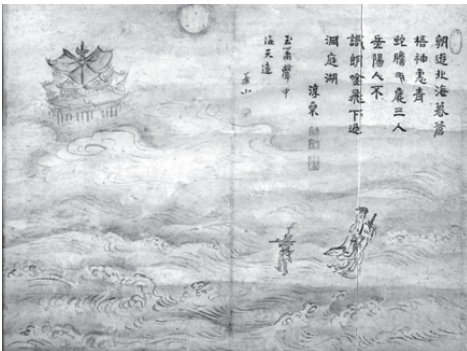 朝遊北海暮蒼
梧袖裏青
蛇膽气麄三入
岳陽人不
識朗唫飛下過
洞庭湖
玉簫聲中
海天遠